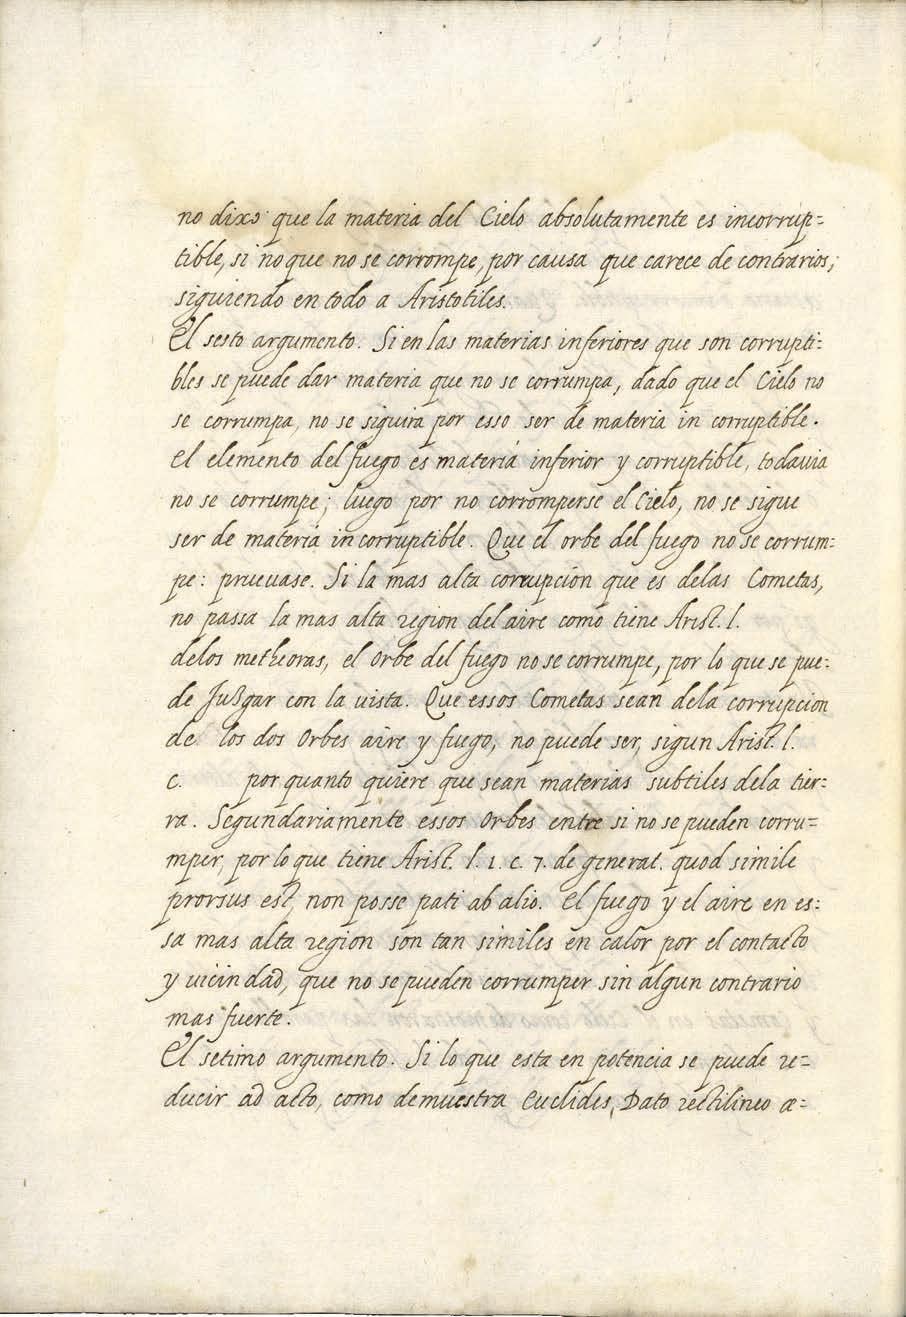 no dixo que la materia del Cielo absolutamente es incorrup=
tible, si no que no se corrompe, por causa que carece de contrarios;
siguiendo en todo a Aristotiles.
El sesto argumento. Si en las materias inferiores que son corrupti=
bles se puede dar materia que no se corrumpa, dado que el Cielo no
se corrumpa, no se siguira por esso ser de materia in corruptible.
el elemento del fuego es materia inferior y corruptible, todauia
no se corrumpe; luego por no corromperse el Cielo, no se sigue
ser de materia incorruptible. Que el orbe del fuego no se corrum=
pe: prueuase. Si la mas alta corrupcion que es delas Cometas,
no passa la mas alta region del aire como tiene Arist. l.
delos metheoras, el Orbe del fuego no se corrumpe, por lo que se pue=
de Juβgar con la vista. Que essos Cometas sean dela corrupcion
de los dos Orbes aire y fuego, no puede ser, sigun Arist. l.
c. por quanto quiere que sean materias subtiles dela tier=
ra. Segundariamente essos Orbes entre si no se pueden corru=
mper, por lo que tiene Arist. l. 1. c. 7. de generat. quod simile
prorsus est, non posse pati ab alio. el fuego y el aire en es=
sa mas alta region son tan similes en calor por el contacto
y uicindad, que no se pueden corrumper sin algun contrario
mas fuerte.
El setimo argumento. Si lo que esta en potencia se puede re=
ducir ad acto, como demuestra Euclides, Dato rectilineo æ=